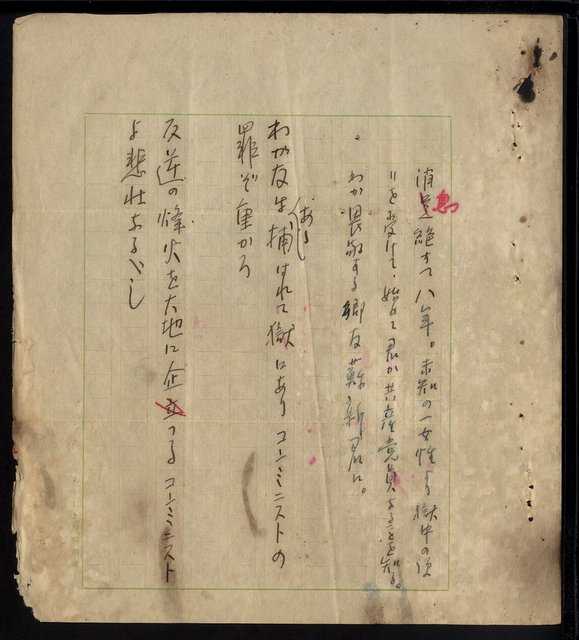 消息絶えて八年。未知の一女性より獄中の便
りを受けて、始めて君が共産党員なることを知る。
わが畏敬する郷友蘇新君に。
わが友は捕はれて獄にあり コンミニストの
罪ぞ重かろ
反逆の烽火を大地に企つる コンミニスト
よ悲壮なるべし